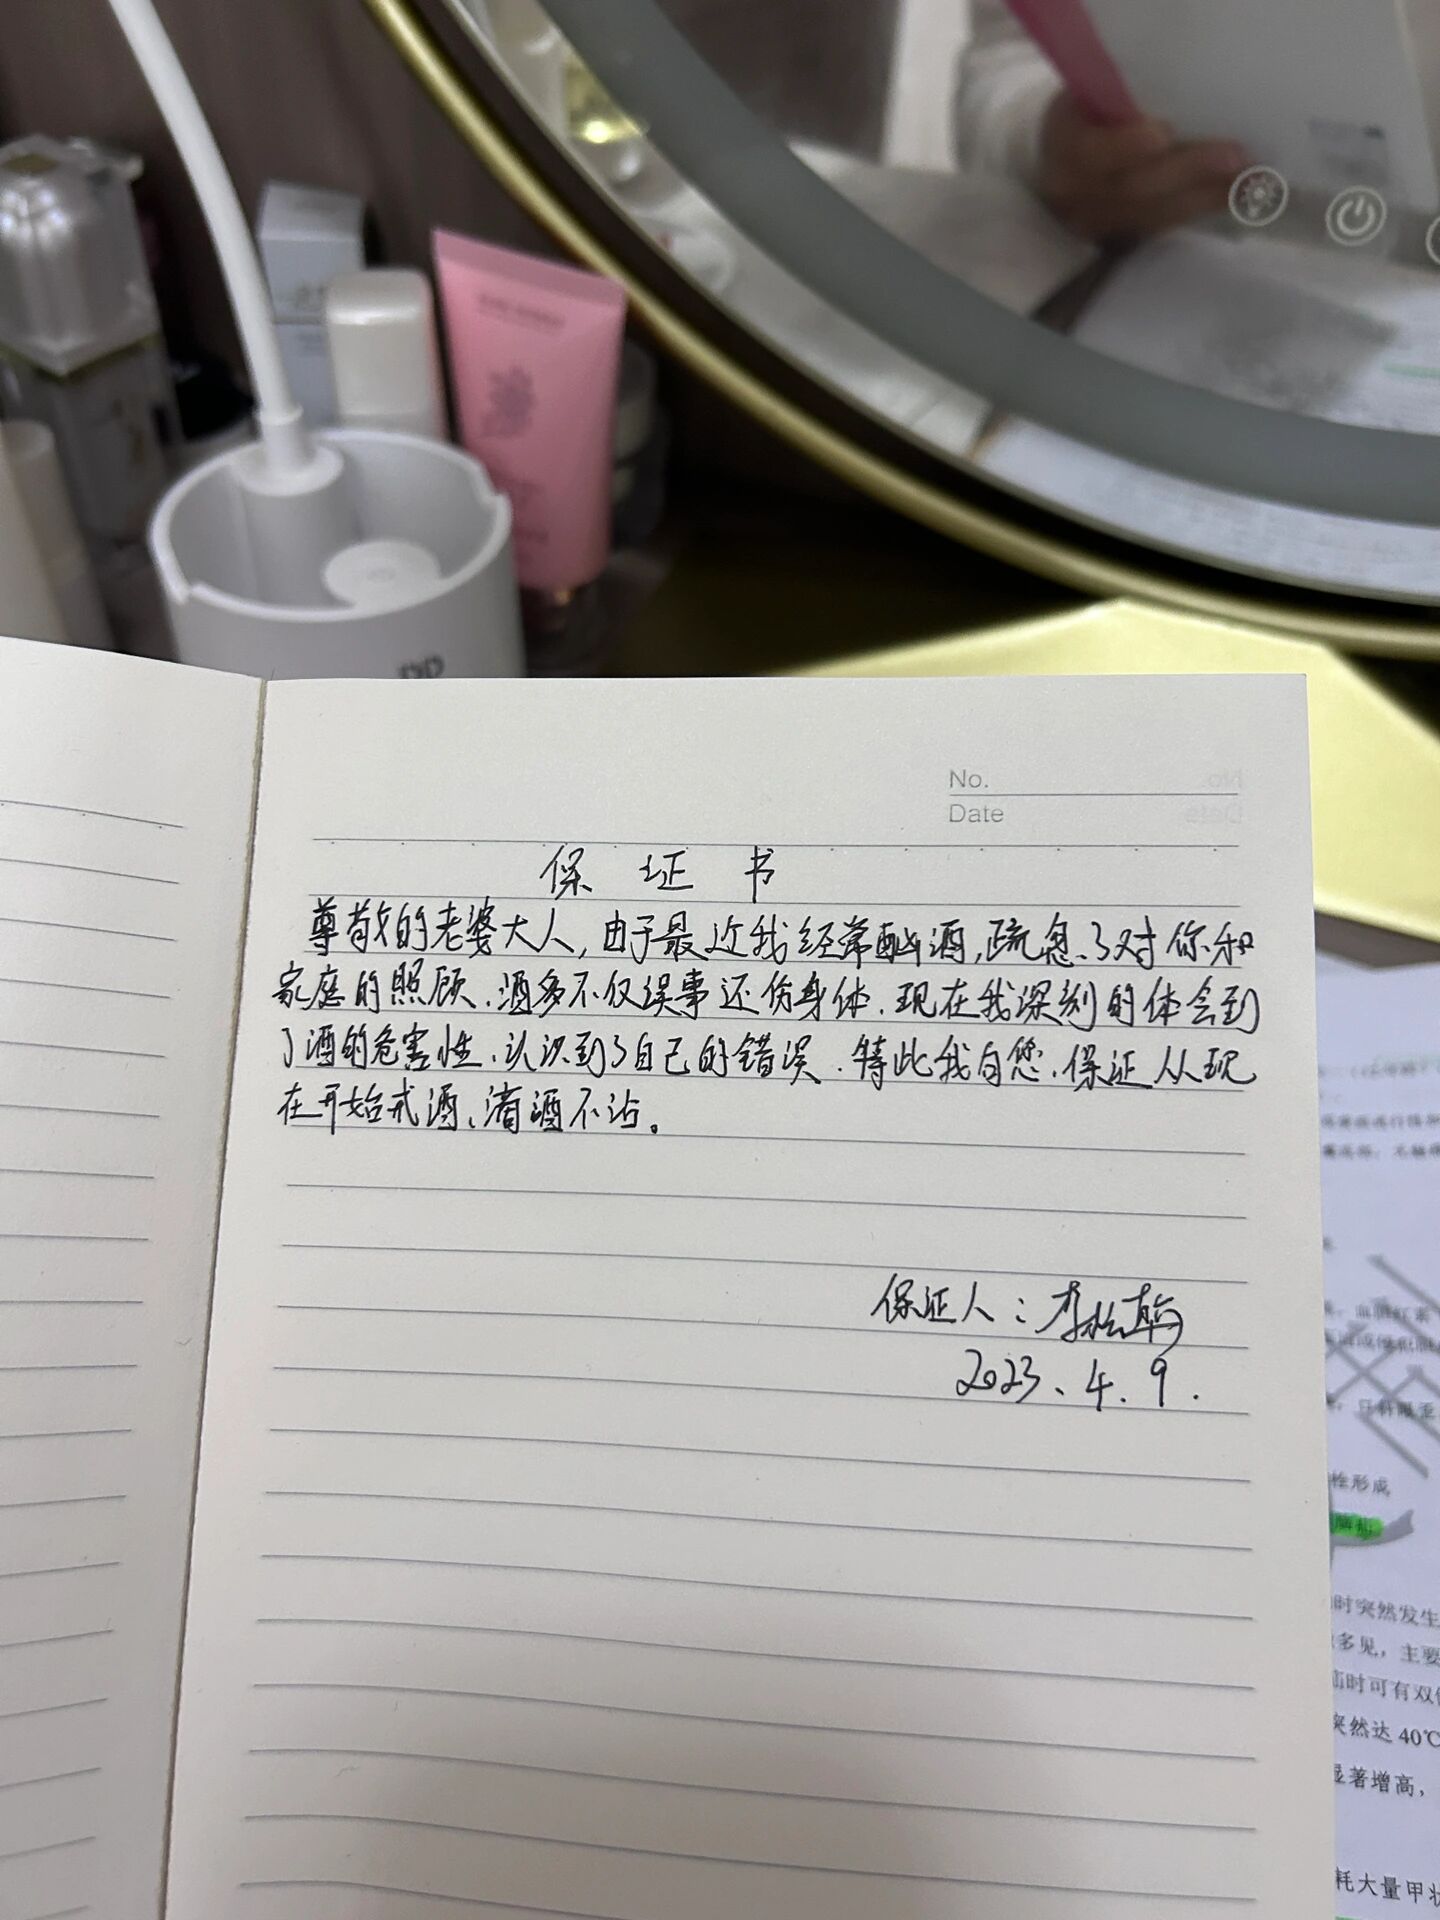 No.
Date
保证书
尊敬的老婆大人,由于最近我经常酗酒,疏忽了对你和
家庭的照顾.酒多不仅误事还伤身体.现在我深刻的体会到
了酒的危害性.认识到了自己的错误.特此我向您.保证从现
在开始戒酒、滴酒不沾。
保证人:李松
2023.4.9.
栓形成
时突然发生
多见,主要
时可有双
突然达40℃
显著增高,
耗大量甲状